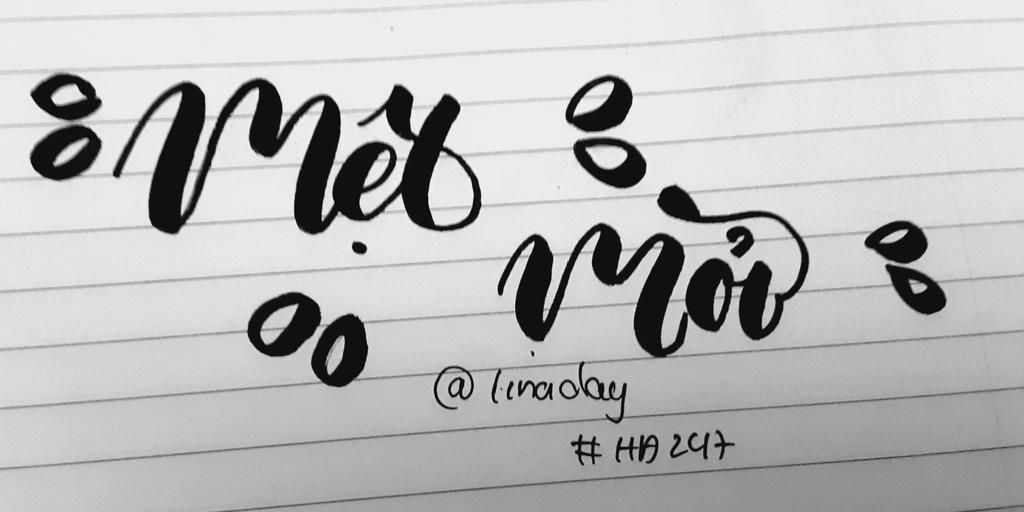 Mệt
Mỏi
@linaday
#HA247